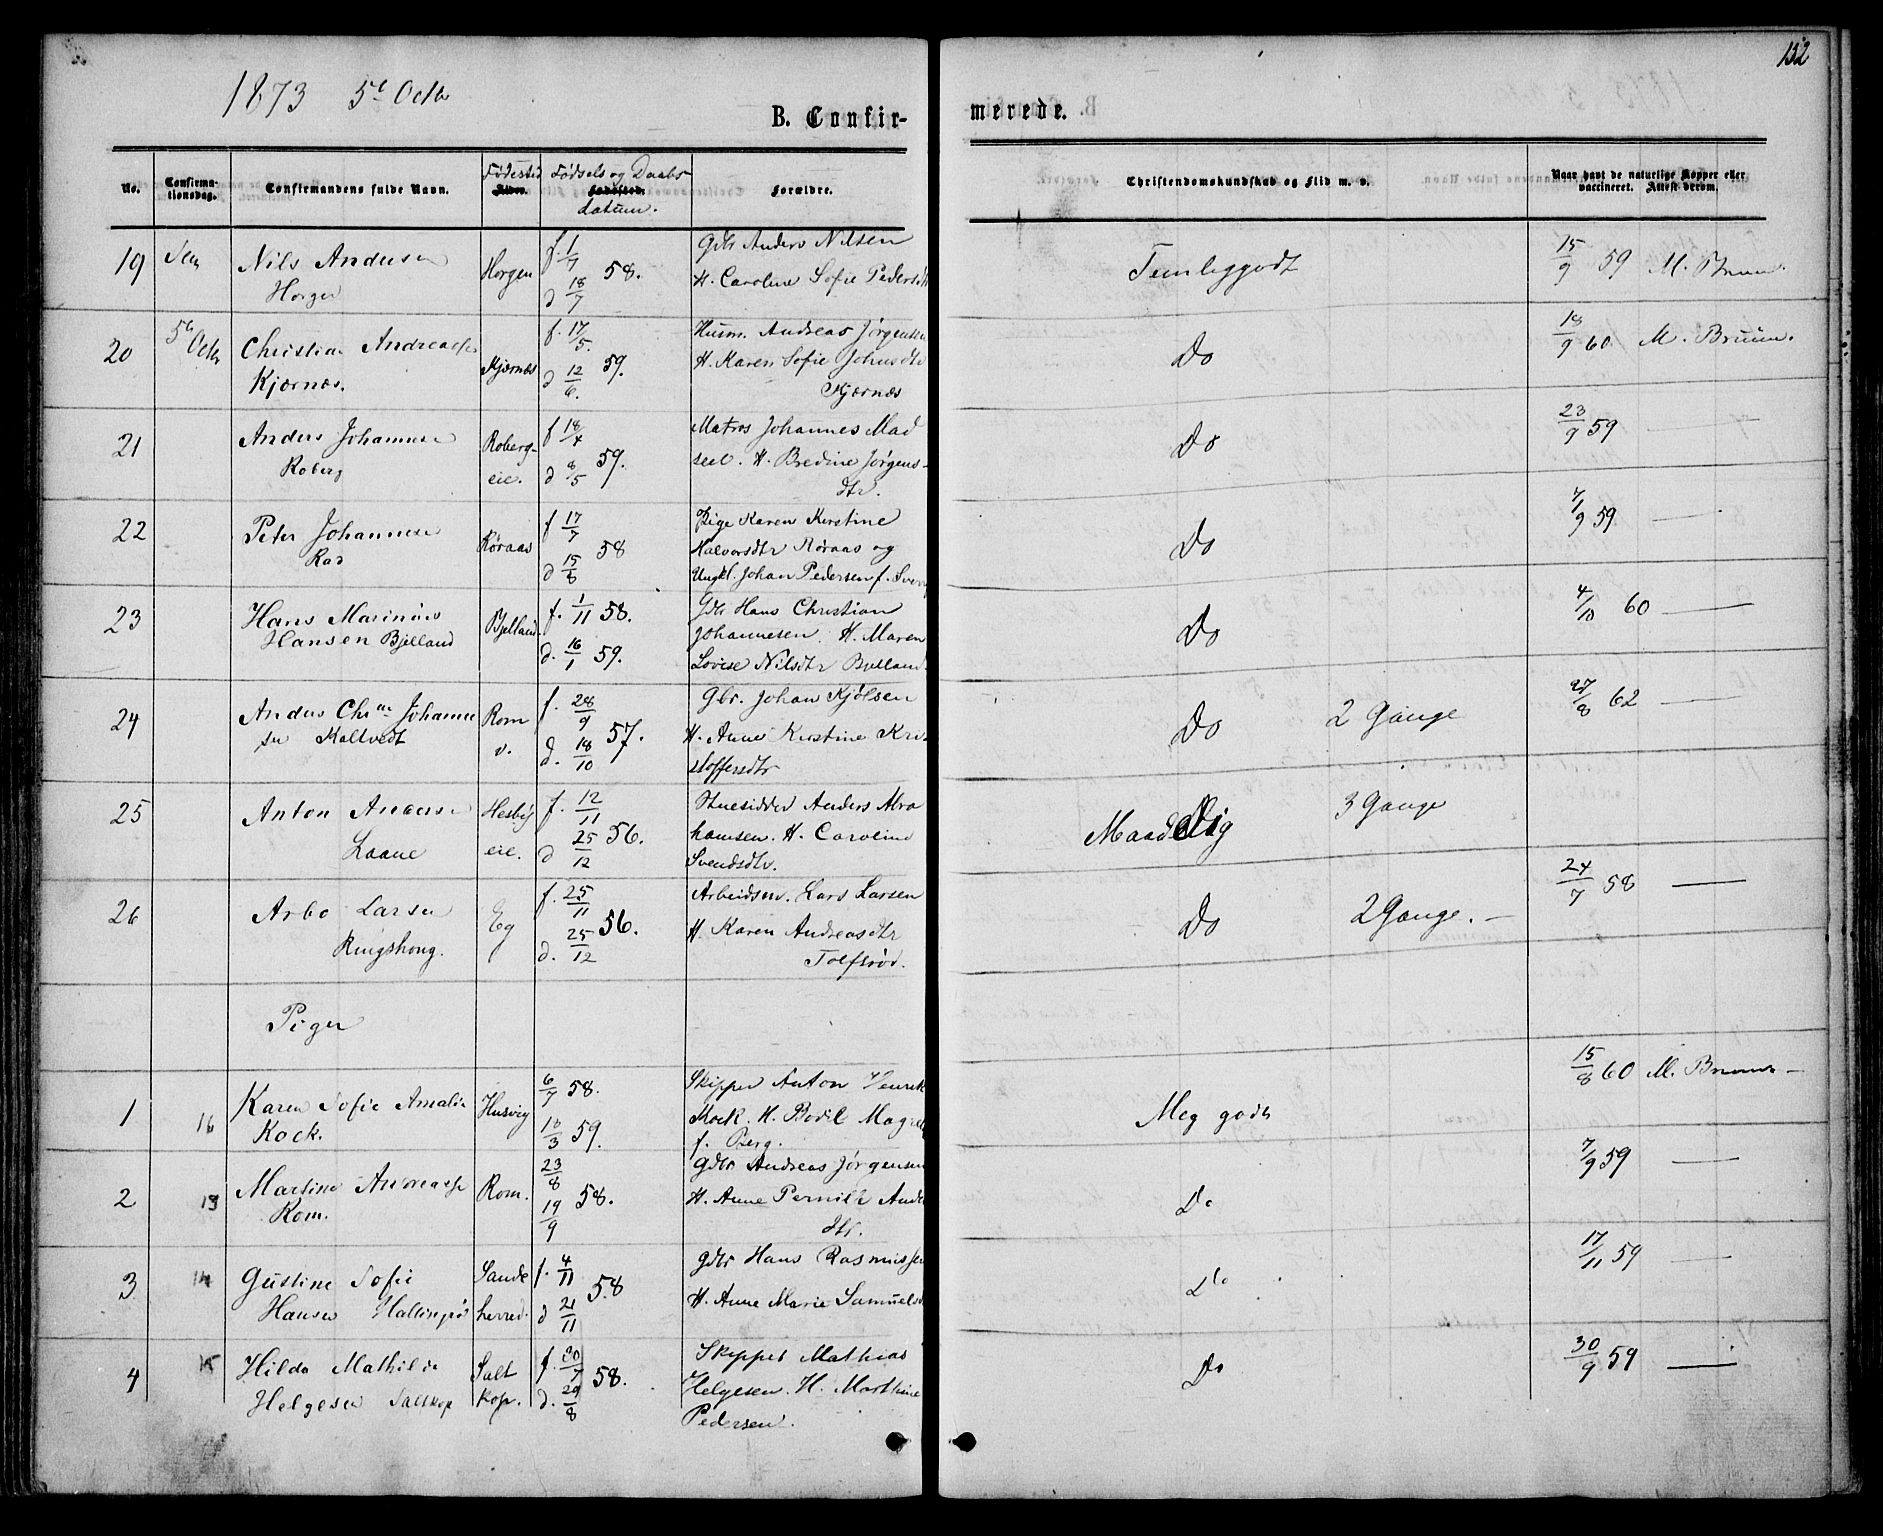 132
1873 5t Octb
B. Confir-
merede.
No.
Confirma-
tionsdag.
Confirmandens fulde Navn.
Fødested
Alder.
Fødsels og Daabs
Fødested.
datum.
Forældre.
Christendomskundskab og Flid m. v.
Naar havt de naturlige Kopper eller
vaccineret. Attest derom.
19 Nils Andersen Horgen f. 1/7 58. Gdbr Anders Nilsen Temleggodt 15/9 59 M. Bruun.
Horgen d 18/7 H. Caroline Sofie Pedersdtr
20 5t Octb Christian Andreassen Kjærnæs f. 17/5. 59. Huusm. Andreas Jørgensen Do 18/9 60 M. Bruun.
Kjærnæs. d 12/6. H. Karen Sofie Johnsdtr
Kjærnæs
21 Anders Johannesen Roberg- f 18/4 59. Matros Johannes Mad Do 23/9 59
Roberg eie. d 8/5 sen. H. Bredine Jørgens-
dtr.
22 Peter Johannesen Røraas f 17/7 58 Pige Karen Kirstine Do 7/9 59
Rad d 15/8 Halvorsdtr Røraas og
Ungkl. Johan Pedersen f.
23 Hans Marinius Bjelland f. 1/11 58. Gdbr Hans Christian Do 4/10 60
Hansen Bjelland d. 16/1 59. Johannesen. H. Maren
Lovise Nilsdtr Bjelland
24 Anders Chrn Johanne Rom f. 28/9 57. Gbr. Johan Kjølsen Do 2 Gange 27/8 62
sen Kaltvedt v. d. 18/10 H. Anne Kirstine Kri
stoffersdtr
25 Anton Andersen Hesby f. 12/11 56. Huesidder Anders Abra Maadelig 3 Gange
Laane eie. d 25/12 hamsen. H. Caroline
Svendsdtr.
26 Arbo Larsen Eg f. 25/11 56. Arbeidsm. Lars Larsen Do 2 Gange. 24/7 58
Ringshoug. d. 25/12 H. Karen Andreasdtr
Tolfsrød.
Piger
1 16 Karen Sofie Amalie Husvig 6/7 58. Skipper Anton Henrik Meg godt 15/8 60 M. Bruun
Kock. 13/3 59. Kock. H. Bodil Magrete
f. Berg.
2 13 Martine Andreasse Rom. 23/8 58. Gdbr Andreas Jørgensen Do 7/9 59
Rom. 19/9 H. Anne Pernille Anders
dtr.
3 14 Gustine Sofie Sande f. 4/11 58 Gdbr Hans Rasmussen Do 17/11 59
Hansen herred. d 21/11 H. Anne Marie Samuelsd
4 15 Hilda Mathilde Salt f. 30/7 58. Skipper Mathias Do 30/9 59
Helgesen Saltkop kop. d. 29/8 Helgesen. H. Marthine
Pedersen.